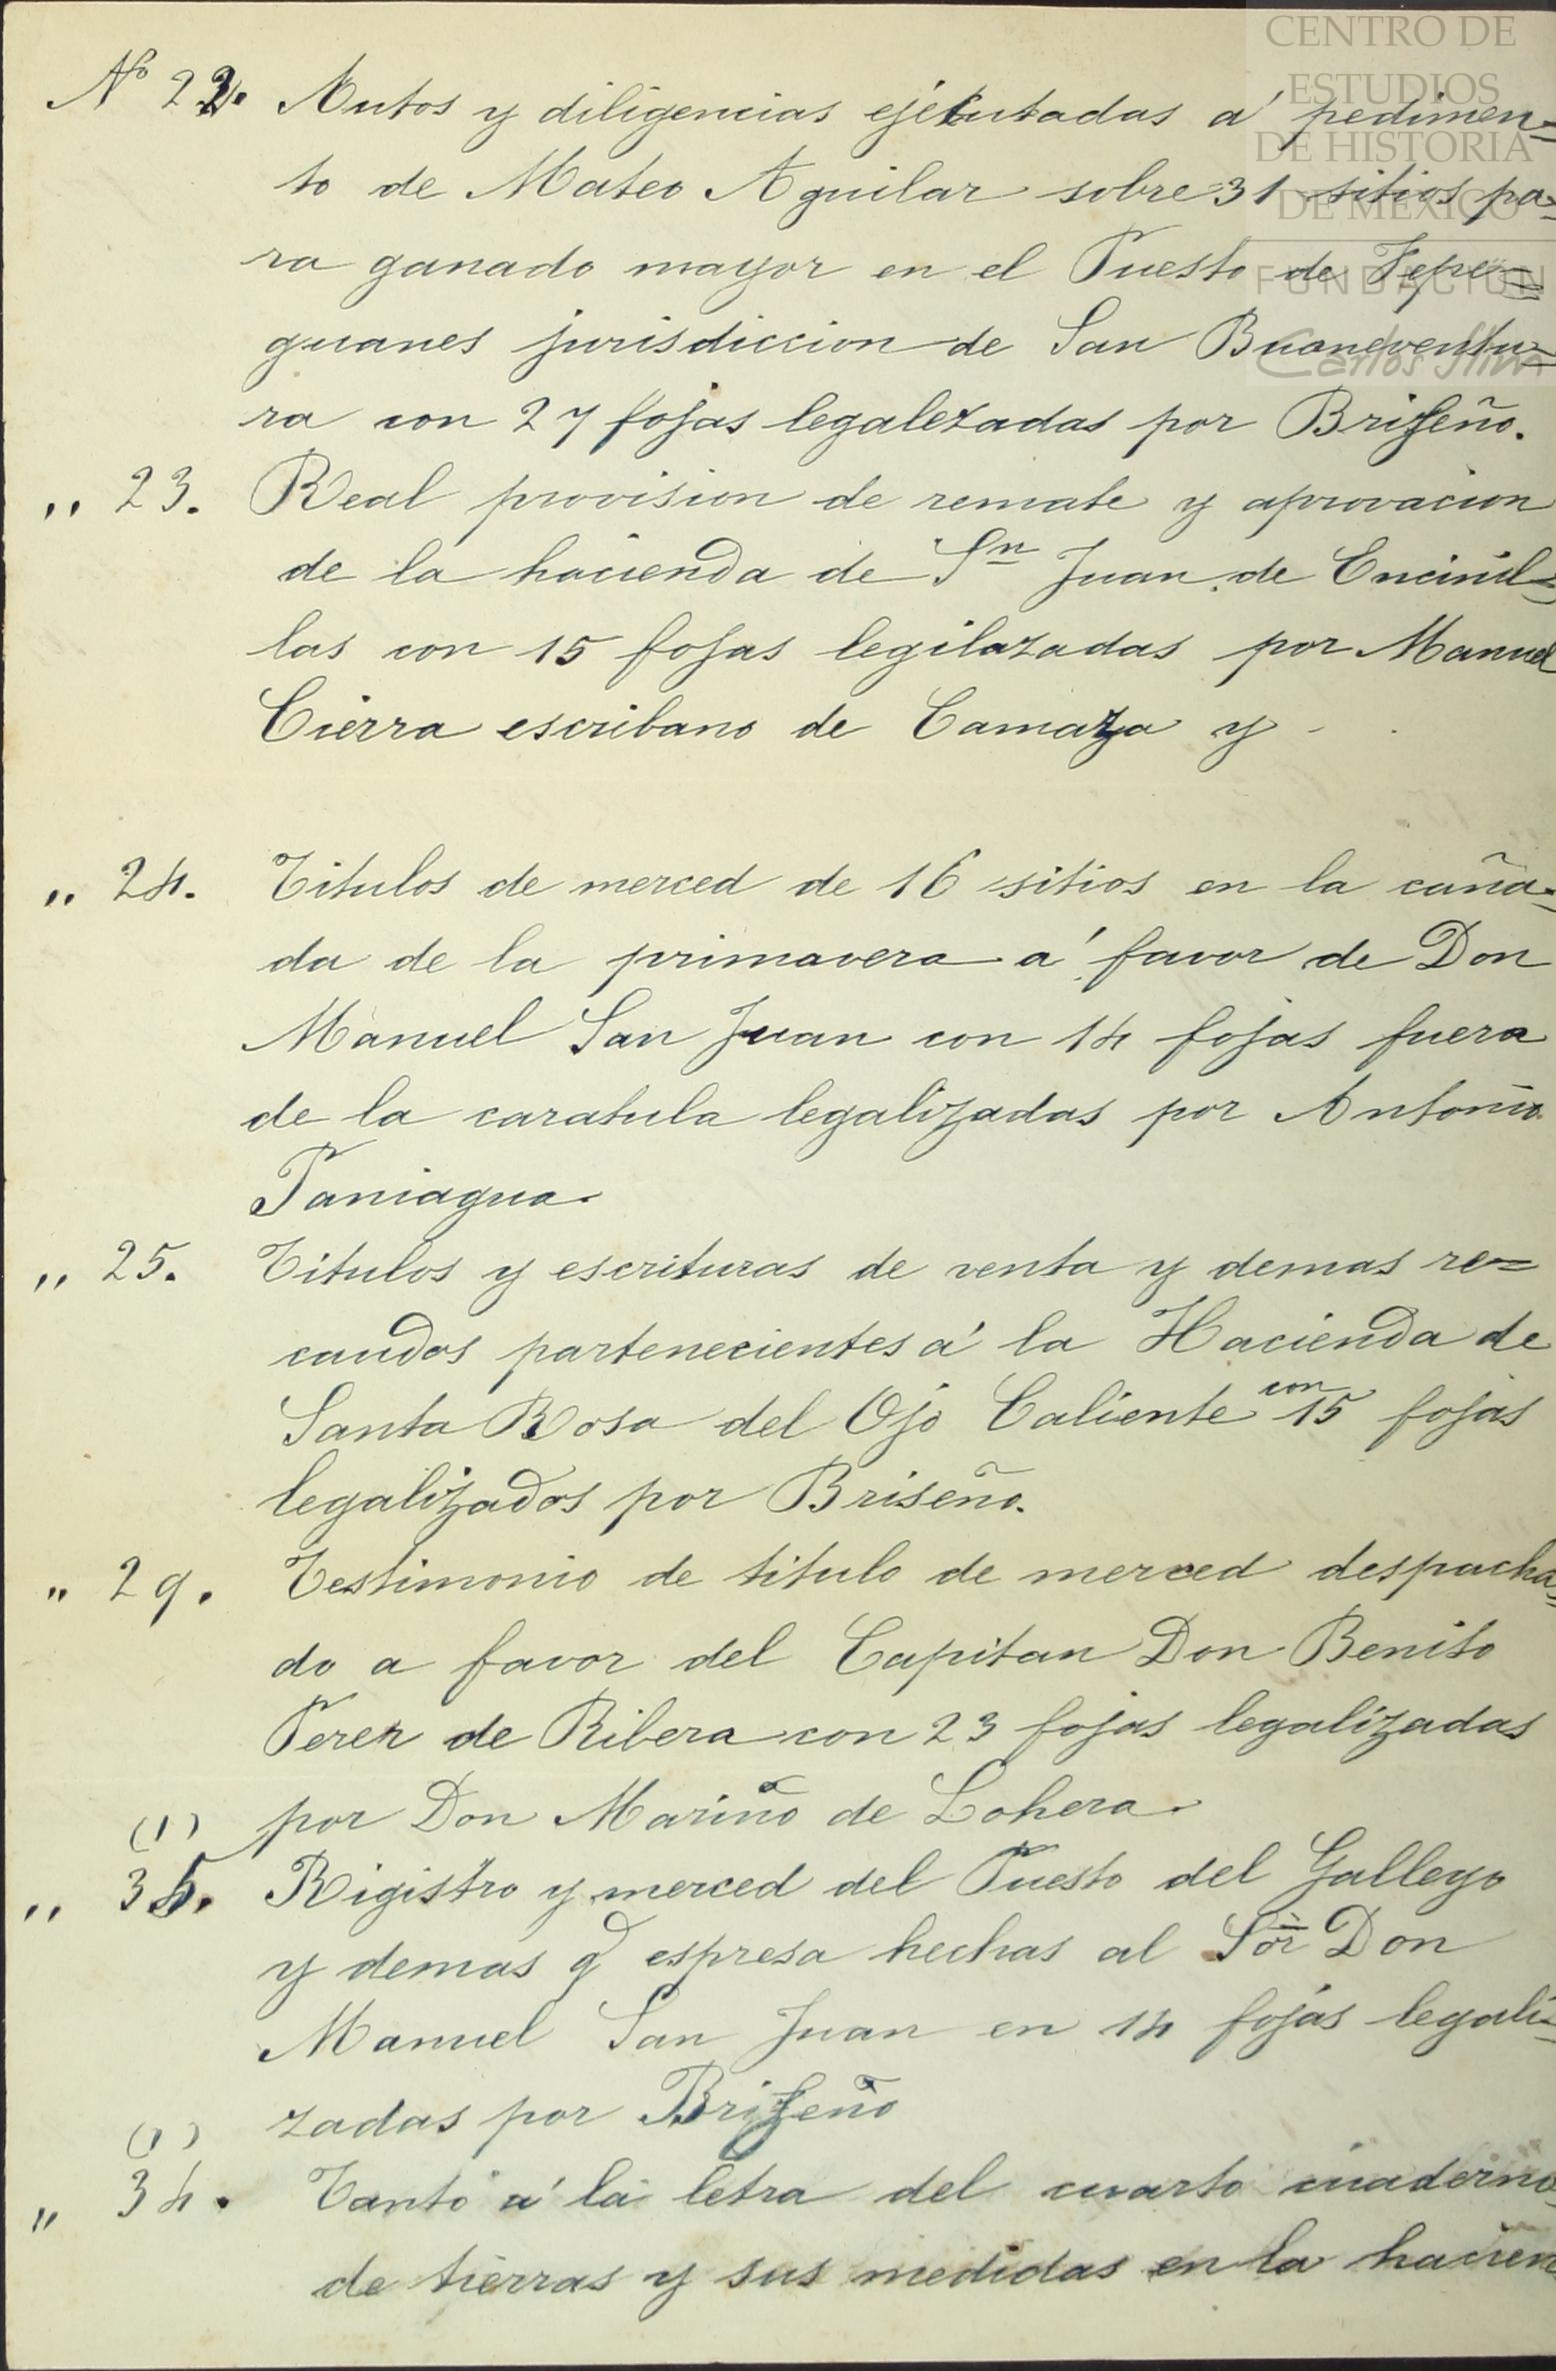 CENTRO DE
ESTUDIOS
DE HISTORIA
DE MEXICO
FUNDACIÓN
Carlos Slim
Nº 22. Autos y diligencias ejecutadas a' pedimen=
to de Mateo Aguilar sobre 31 sitios pa=
ra ganado mayor en el Puesto de Tepe=
guanes jurisdiccion de San Buaneventu=
ra con 27 fojas legalezadas por Brizeño.
,, 23. Real provision de remate y aprovacion
de la hacienda de Sn Juan de Encinil=
las con 15 fojas legilazadas por Manuel
Cierra escribano de Camaza y
,, 24. Titulos de merced de 16 sitios en la caña=
da de la primavera a' favor de Don
Manuel San Juan con 14 fojas fuera
de la caratula legalizadas por Antonio
Paniagua.
,, 25. Titulos y escrituras de venta y demas re=
caudos partenecientes a' la Hacienda de
Santa Rosa del Ojo Caliente con 15 fojas
legalizados por Briseño.
" 29. Testimonio de titulo de merced despacha=
do a favor del Capitan Don Benito
Perez de Ribera con 23 fojas legalizadas
por Don Mariño de Lohera.
(1)
,, 35. Rigistro y merced del Puesto del Gallego
y demas q espresa hechas al Sor Don
Manuel San Juan en 14 fojas legali=
zadas por Brizeño
(1)
" 34. Tanto a' la letra del cuarto cuaderno
de tierras y sus medidas en la hacien